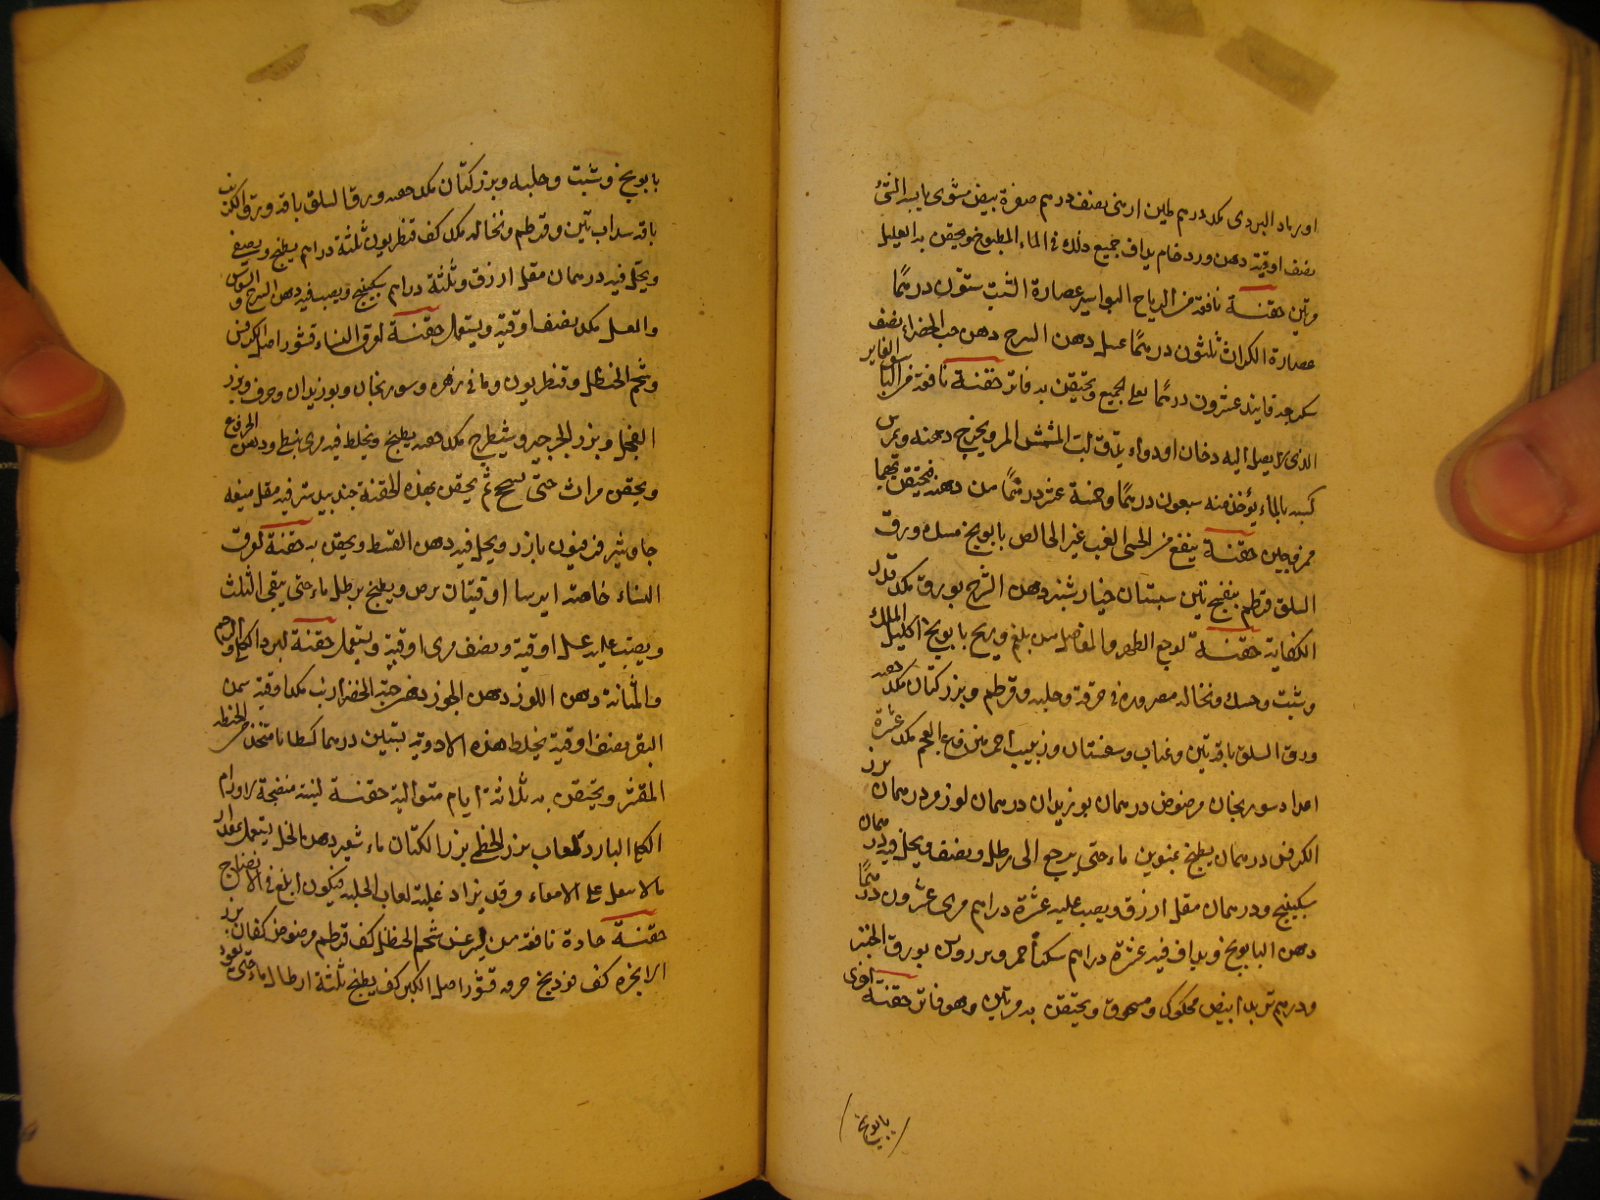 او رماد البردى مكد درهم طين ارمنى نصف درهم صفرة بيض مشوى يابسه
نصف اوقية دهن ورد خام يداف جميع ذلك فى الماء المطبوخ ويحقن به العليل
مرتين حقنة نافعة من الرياح البواسير عصارة ستون درهمًا
عصارة الكراث ثلثون درهمًا عسل دهن السرج دهن حب الخضراء نصف
سكرجه فانيد عشرون درهمًا يغلى الجميع ويحتقن به فاتر حقنة نافعة من البواسير
الذى لا يصل اليه دخان او دواء يدق لب المشمش المر ويخرج دهنه
كسبه بالماء يؤخذ منه سبعون درهمًا وخمسة عشر درهمًا من دهنه فيحتقن بهما
ممزوجين حقنة ينفع من الحمى الغب غير الخالص بابونج ورق
السلق قرطم بنفسج تين سبستان خيار شنبر دهن الشرج بورق مكد قدر
الكفاية حقنة لوجع الظهر والمفاصل من بلغم وريح بابونج اكليل الملك
وشبت وحسك ونخاله مصرورة فى خرقة وحلبه وقرطم وبزر كتان مكد حفنه
ورق السلق باقه تين وعناب وسفستان وزبيب احمر منزوع العجم مكد عشرة
اعداد سورنجان مرضوض درهمان بوزيدان درهمان لوز ودرهمان بزر
الكرفس درهمان يطبخ ماء حتى يرجع الى رطل ونصف ويحل فيه درهمان
سكبينج ودرهمان مقل ازرق ويصب عليه عشرة دراهم مرى عشرون درهمًا
دهن البابونج ويداف فيه عشرة دراهم سكر احمر بورق الخبز
ودرهم تربد ابيض محكوك ومسحوق ويحتقن به مرتين وهو فاتر حقنة اخرى
بابونج
بابونج وشبت وحلبه وبزر كتان مكد حفنه ورق السلق باقه وورق الكرنب
باقه سداب تين وقرطم ونخاله مكد كف قنطريون ثلثة دراهم يطبخ ويصفى
ويحل فيه درهمان مقل ازرق وثلثة دراهم سكبينج ويصب فيه دهن السرج و
والعسل مكد نصف اوقية ويستعمل حقنة لعرق النساء قشور اصل الكرفس
وشحم الحنظل وقنطريون وسورنجان وبوزيدان وحرف وبزر
الفجل وبزر الجرجير وشيطرج مكد حفنه يطبخ ويخلط فيه مرى نبطى ودهن الخروع
ويحقن مرات حتى يسحج ثم يحقن بهذه الحقنة جندبيدستر فيه مقل ميعه
جاوشير فرفيون بازرد ويحل فيه دهن القسط ويحقن به حقنة لعرق
النساء خاصة ايرسا اوقيتان برض ويطبخ برطل ماء حتى يبقى الثلث
ويصب عليه عسل اوقية ونصف مرى اوقية ويستعمل حقنة لبرد الكلى والرحم
والمثانة دهن اللوز دهن الجوز دهن حبة الخضراء مكد اوقية سمن
البقر نصف اوقية يخلط هذه الادوية
المقشر ويحتقن به ثلاثة ايام متوالية حقنة لينة منضجة لاورام
الكلى الباردة لعاب بزر الخطمى بزر الكتان ماء شعير دهن الخل يستعمل بمقدار
ما لا يثقل على الامعاء وقد يزاد عليه لعاب الحلبه فيكون ابلغ فى الانضاج
حقنة حادة نافعة من ليثرغس شحم الحنظل كف قرطم مرضوض كفان بزر
الانجره كف فوذنج حزمه قشور اصل الكبر كف يطبخ ثلثة ارطال ماء حتى يعود